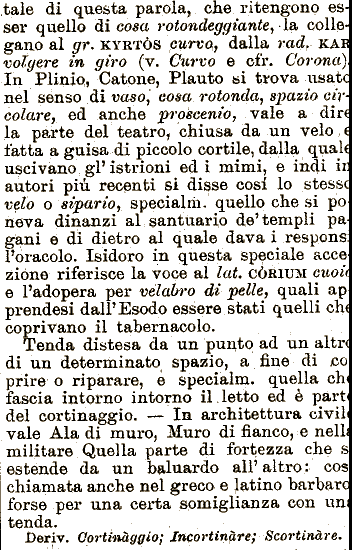 tale di questa parola, che ritengono es-
ser quello di cosa rotondeggiante, la colle-
gano al gr. KYRTÒS curvo, dalla rad. KAR
volgere in giro (v. Curvo e cfr. Corona).
In Plinio, Catone, Plauto si trova usato
nel senso di vaso, cosa rotonda, spazio cir-
colare, ed anche proscenio, vale a dire
la parte del teatro, chiusa da un velo e
fatta a guisa di piccolo cortile, dalla quale
uscivano gl' istrioni ed i mimi, e indi in
autori più recenti si disse così lo stesso
velo o sipario, specialm. quello che si po-
neva dinanzi al santuario de' templi pa-
gani e di dietro al quale dava i responsi
l'oracolo. Isidoro in questa speciale acce-
zione riferisce la voce al lat. CÒRIUM cuoio
e l'adopera per velabro di pelle, quali ap-
prendesi dall' Esodo essere stati quelli che
coprivano il tabernacolo.
Tenda distesa da un punto ad un altro
di un determinato spazio, a fine di co-
prire o riparare, e specialm. quella che
fascia intorno intorno il letto ed è parte
del cortinaggio. — In architettura civile
vale Ala di muro, Muro di fianco, e nella
militare Quella parte di fortezza che si
estende da un baluardo all' altro: così
chiamata anche nel greco e latino barbaro
forse per una certa somiglianza con una
tenda.
Deriv. Cortinàggio; Incortinàre; Scortinàre.